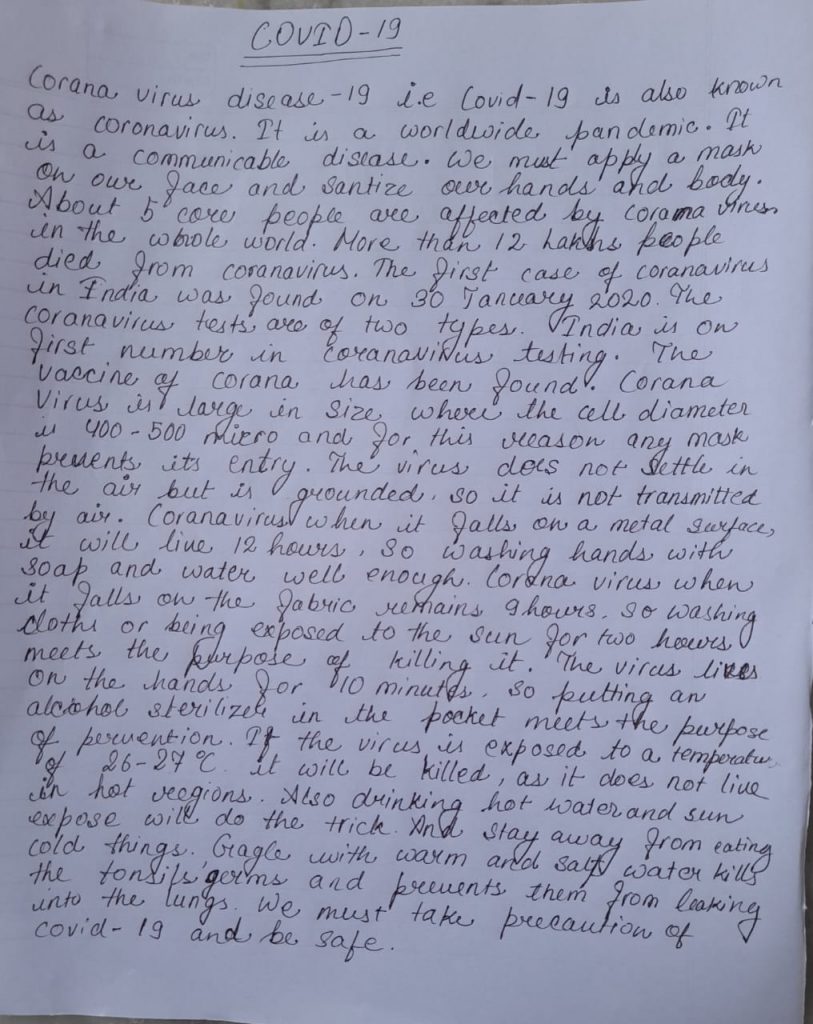 COVID-19
Corana virus disease-19 i.e Covid-19 is also known
as coronavirus. It is a worldwide pandemic. It
is a communicable disease. We must apply a mask
on our face and santize our hands and body.
About 5 core people are affected by corama virus
in the whole world. More than 12 Lakhs people
died from coranavirus. The first case of coranavirus
in India was found on 30 January 2020. The
coranavirus tests are of two types. India is on
first number in coranavirus testing. The
vaccine of corana has been found. Corana
virus is large in size where the cell diameter
is 400-500 micro and for this reason any mask
prevents its entry. The virus does not settle in
the air but is grounded, so it is not transmitted
by air. Coranavirus when it falls on a metal surface,
it will live 12 hours, so washing hands with
soap and water well enough. Corana virus when
it falls on the fabric remains 9 hours, so washing
cloths or being exposed to the sun for two hours
meets the purpose of killing it. The virus lives
on the hands for 10 minutes, so putting an
alcohol sterilizer in the pocket meets the purpose
of pervention. If the virus is exposed to a temperatur
of 26-27°C. it will be killed, as it does not live
in hot regions. Also drinking hot water and sun
expose will do the trick. And stay away from eating
cold things. Gragle with warm and salt water kills
the tonsils' germs and prevents them from leaking
into the lungs. We must take precaution of
covid-19 and be safe.